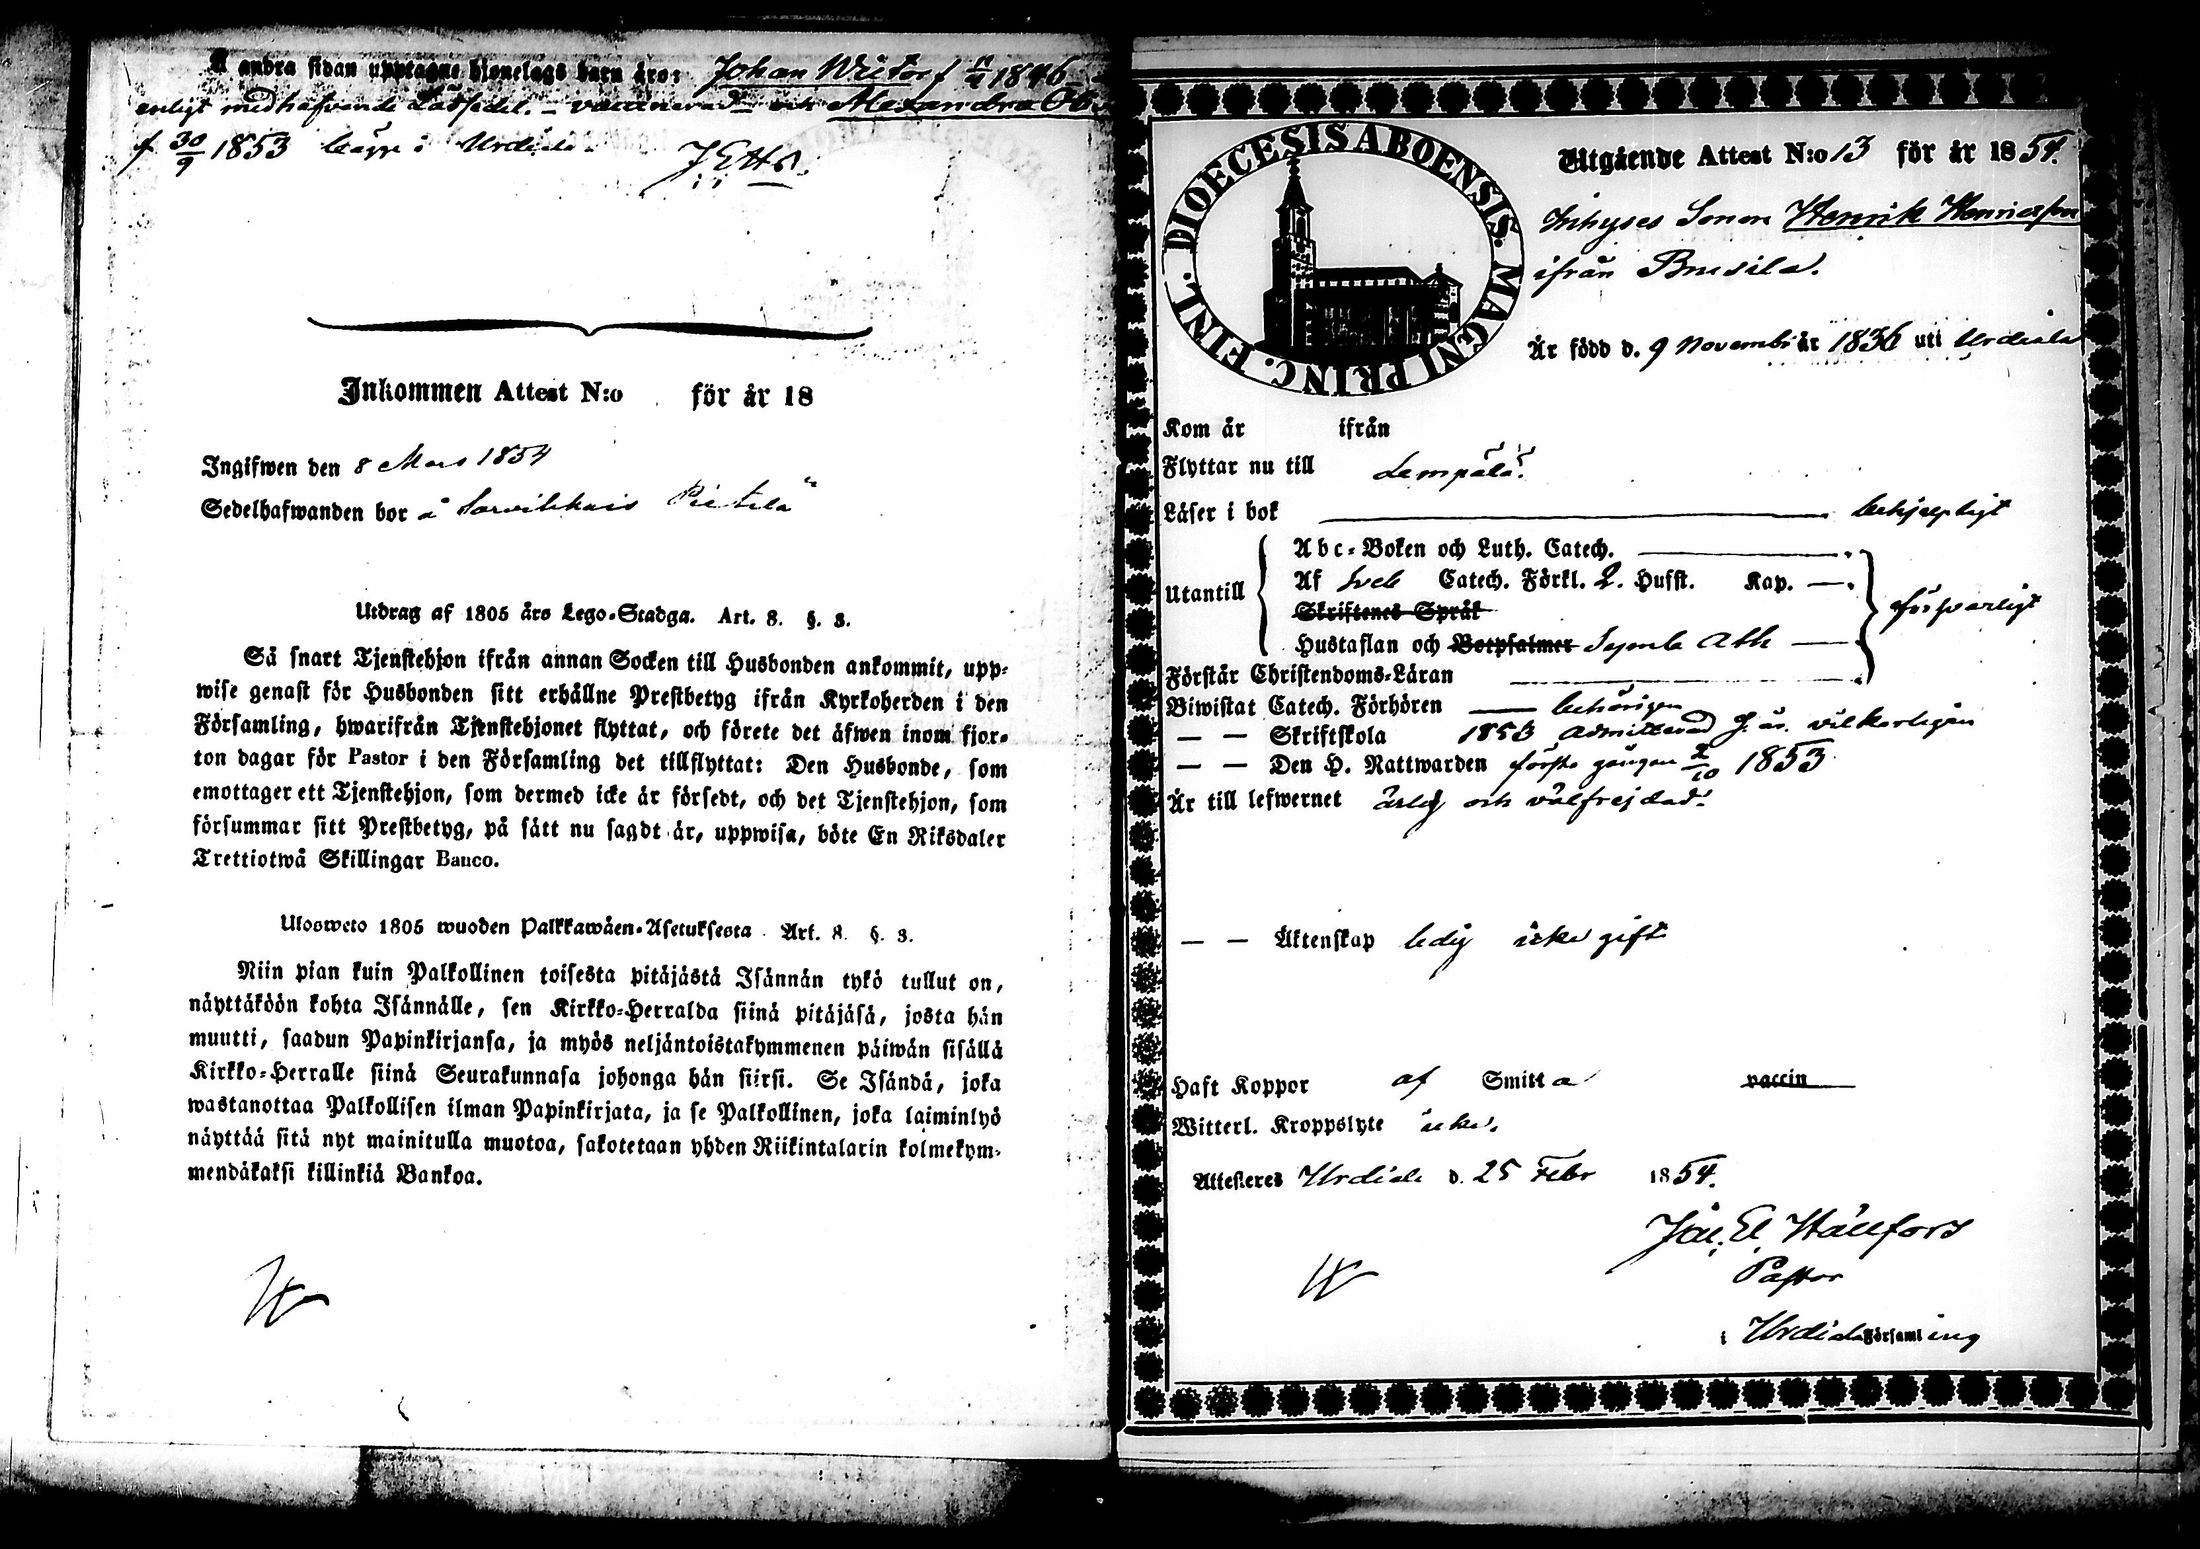 Å andra sidan upptagne hjonelags barn äro: Johan Wictor f 1846
enligt medhafvande Läsesedel. – vaccinerad – och Alexandra
f 30/9 1853 begge i Urdiala.
Inkommen Attest N:o för år 18
Ingifwen den 8 Mars 1854
Sedelhafwanden bor å Sarvikkais Pietilä
Utdrag af 1805 års Lego-Stadga. Art. 8. §. 3.
Så snart Tjenstehjon ifrån annan Socken till Husbonden ankommit, upp-
wise genast för Husbonden sitt erhållne Prestbetyg ifrån Kyrkoherden i den
Församling, hwarifrån Tjenstehjonet flyttat, och förete det äfwen inom fjor-
ton dagar för Pastor i den Församling det tillflyttat: Den Husbonde, som
emottager ett Tjenstehjon, som dermed icke är försedt, och det Tjenstehjon, som
försummar sitt Prestbetyg, på sätt nu sagdt är, uppwisa, böte En Riksdaler
Trettiotwå Skillingar Banco.
Ulosweto 1805 wuoden Palkkawäen-Asetuksesta Art. 8. §. 3.
Niin pian kuin Palkollinen toisesta pitäjästä Isännän tykö tullut on,
näyttäköön kohta Isännälle, sen Kirkko-Herralda siinä pitäjäsä, josta hän
muutti, saadun Papinkirjansa, ja myös neljäntoistakymmenen päiwän sisällä
Kirkko-Herralle siinä Seurakunnasa johonga hän siirsi. Se Isändä, joka
wastanottaa Palkollisen ilman Papinkirjata, ja se Palkollinen, joka laiminlyö
näyttää sitä nyt mainitulla muotoa, sakotetaan yhden Riikintalarin kolmekym-
mendäkaksi killinkiä Bankoa.
DIOECESIS ABOENSIS. MAGNI PRINC. FINL.
Utgående Attest N:o 13 för år 1854.
Inhyses Sonen Henrik Henricsson
ifrån Brusila.
Är född d. 9 November år 1836 uti Urdiala
Kom år ifrån
Flyttar nu till Lempälä.
Läser i bok behjelpligt
Utantill
Abc-Boken och Luth. Catech.
Af Sveb Catech. Förkl. 2. Hufst. Kap. —
Skriftenes Språk
Hustaflan och Botpsalmer Symb Ath
försvarligt
Förstår Christendoms-Läran
Biwistat Catech. Förhören — behörigen
— — Skriftskola 1853 admitterad
— — Den H. Nattwarden första gången 2/10 1853
Är till lefwernet ärlig och välfrejdad.
— — Äktenskap ledig icke gift
Haft Koppor af Smitta vaccin
Witterl. Kroppslyte icke.
Attesteres Urdiala d. 25 Febr 1854.
Hällfors
Pastor
i Urdiala Församling